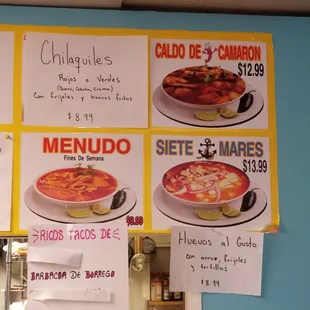 Chilaquiles
Rojos o Verdes
Con frijoles y huevos fritos
$8.99
CALDO DE CAMARON
$12.99
MENUDO
Fines De Semana
SIETE MARES
$13.99
RICOS TACOS DE
BARBACOA DE BORREGO
Huevos al Gusto
con arroz, frijoles
y tortillas
$8.99